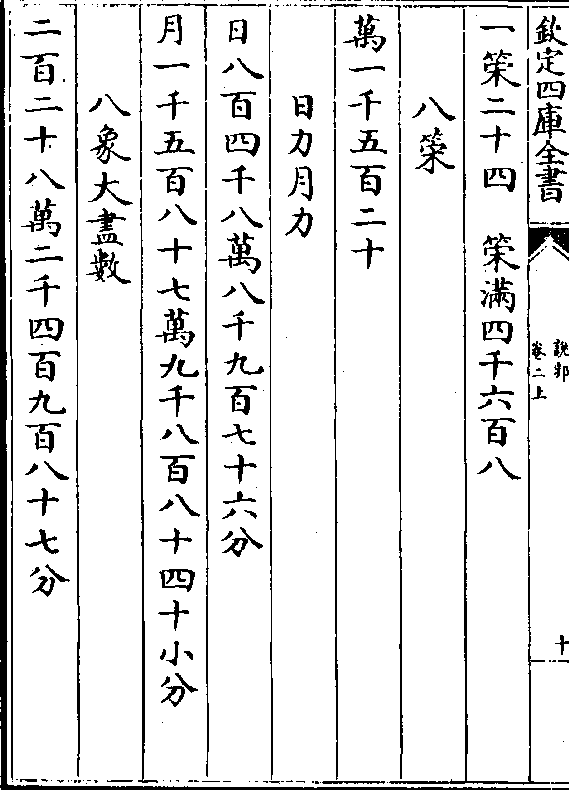 欽定四庫全書
說郛
卷二上
十
一䇿二十四　䇿滿四千六百八
八䇿
萬一千五百二十
日力月力
日八百四千八萬八千九百七十六分
月一千五百八十七萬九千八百八十四十小分
八象大盡數
二百二十八萬二千四百九百八十七分